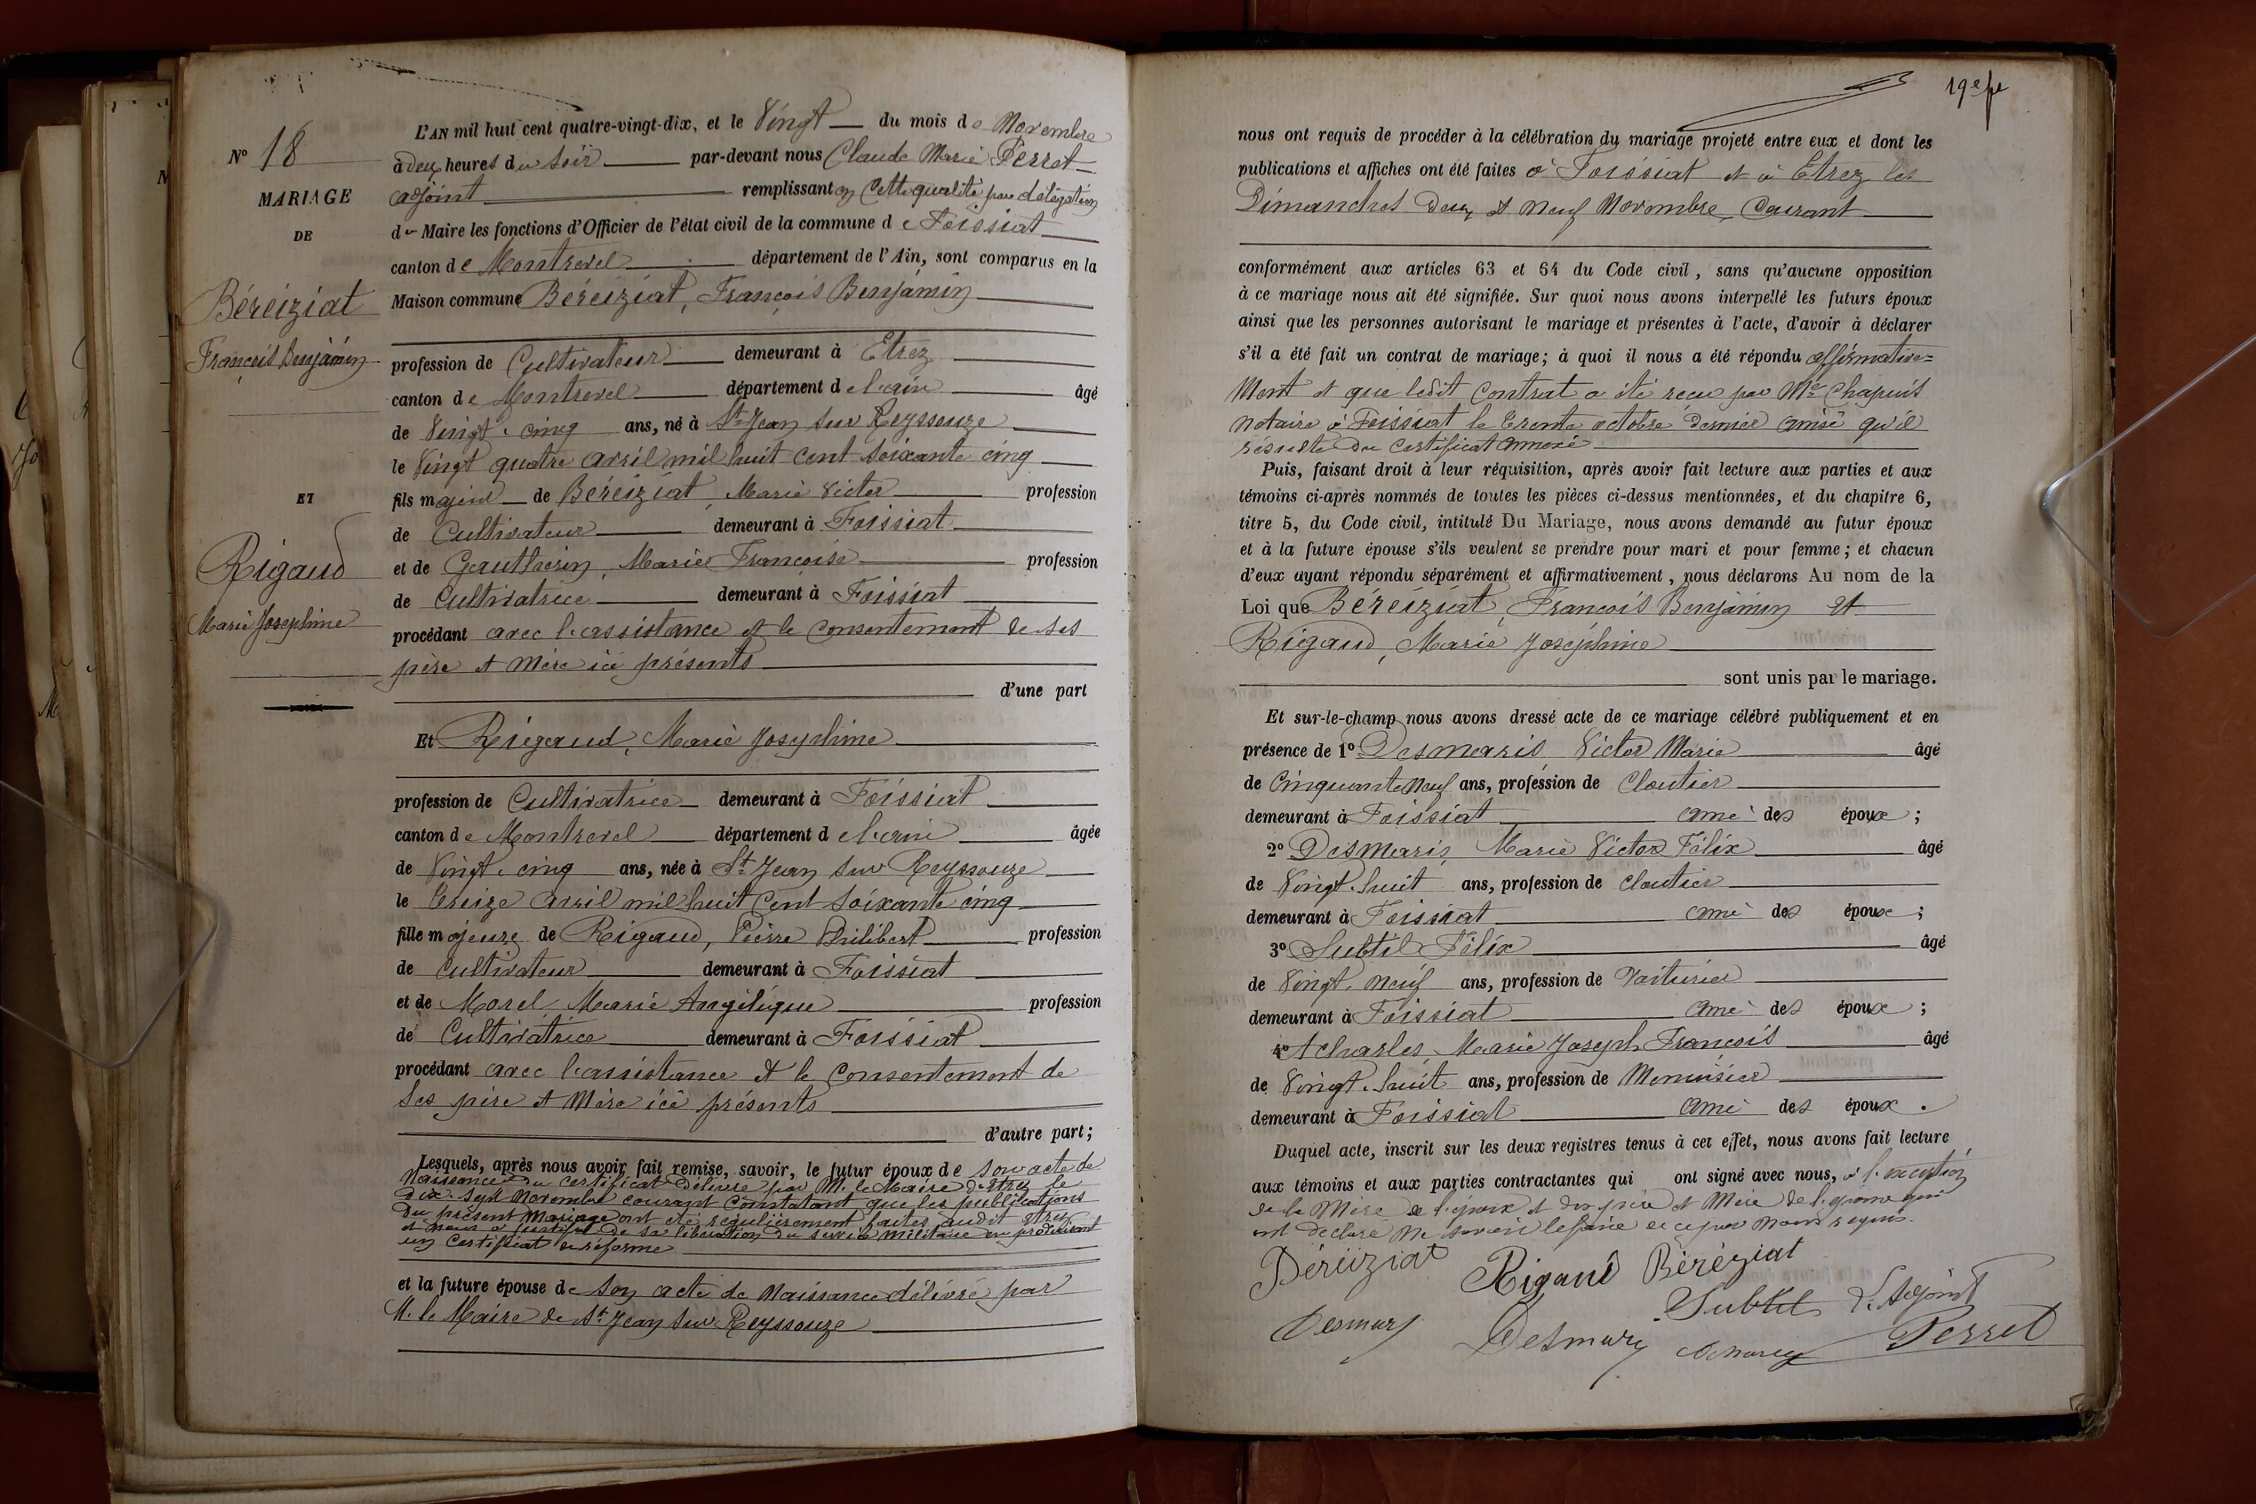 N° 18
MARIAGE
DE
Béréiziat
François Benjamin
ET
Rigaud
Marie Joséphine
L'AN mil huit cent quatre-vingt-dix, et le Vingt du mois de Novembre
à deux heures du soir par-devant nous Claude Marie Perret
adjoint remplissant en cette qualité par délégation
du Maire les fonctions d'Officier de l'état civil de la commune de Foissiat
canton de Montrevel département de l'Ain, sont comparus en la
Maison commune Béréiziat, François Benjamin
profession de Cultivateur demeurant à Etrez
canton de Montrevel département de l'ain âgé
de Vingt-cinq ans, né à St Jean sur Reyssouze
le Vingt quatre avril mil huit cent soixante cinq
fils majeur de Béréiziat, Marie Victor profession
de Cultivateur demeurant à Foissiat
et de Gauthérin, Marie Françoise profession
de Cultivatrice demeurant à Foissiat
procédant avec l'assistance et le consentement de ses
père et mère ici présents
d'une part
Et Rigaud, Marie Joséphine
profession de Cultivatrice demeurant à Foissiat
canton de Montrevel département de l'ain âgée
de Vingt-cinq ans, née à St Jean sur Reyssouze
le treize avril mil huit cent soixante cinq
fille majeure de Rigaud, Pierre Philibert profession
de Cultivateur demeurant à Foissiat
et de Morel, Marie Angélique profession
de Cultivatrice demeurant à Foissiat
procédant avec l'assistance et le consentement de
ses père et mère ici présents
d'autre part;
Lesquels, après nous avoir fait remise, savoir, le futur époux de son acte de
Naissance du certificat délivré par M. le Maire d'Etrez le
dix-sept Novembre courant constatant que les publications
du présent mariage ont été régulièrement faites audit Etrez
et nous a justifié de sa libération du service militaire en produisant
un certificat de réforme
et la future épouse de son acte de naissance délivré par
M. le Maire de St Jean sur Reyssouze
19e fe
nous ont requis de procéder à la célébration du mariage projeté entre eux et dont les
publications et affiches ont été faites à Foissiat et à Etrez les
Dimanches deux et neuf Novembre, Courant
conformément aux articles 63 et 64 du Code civil, sans qu'aucune opposition
à ce mariage nous ait été signifiée. Sur quoi nous avons interpellé les futurs époux
ainsi que les personnes autorisant le mariage et présentes à l'acte, d'avoir à déclarer
s'il a été fait un contrat de mariage; à quoi il nous a été répondu affirmative=
ment et que ledit contrat a été reçu par Me Chapuis
notaire à Foissiat le trente octobre dernier ainsi qu'il
résulte du certificat annexé
Puis, faisant droit à leur réquisition, après avoir fait lecture aux parties et aux
témoins ci-après nommés de toutes les pièces ci-dessus mentionnées, et du chapitre 6,
titre 5, du Code civil, intitulé Du Mariage, nous avons demandé au futur époux
et à la future épouse s'ils veulent se prendre pour mari et pour femme; et chacun
d'eux ayant répondu séparément et affirmativement, nous déclarons Au nom de la
Loi que Béréiziat, François Benjamin et
Rigaud, Marie Joséphine
sont unis par le mariage.
Et sur-le-champ nous avons dressé acte de ce mariage célébré publiquement et en
présence de 1° Desmaris Victor Marie âgé
de Cinquante neuf ans, profession de Cloutier
demeurant à Foissiat ami des époux;
2° Desmaris, Marie Victor Félix âgé
de Vingt-huit ans, profession de cloutier
demeurant à Foissiat ami des époux;
3° Subtil Félix âgé
de Vingt-neuf ans, profession de Voiturier
demeurant à Foissiat ami des époux;
4° Acharles, Marie Joseph François âgé
de Vingt-huit ans, profession de Menuisier
demeurant à Foissiat ami des époux.
Duquel acte, inscrit sur les deux registres tenus à cet effet, nous avons fait lecture
aux témoins et aux parties contractantes qui ont signé avec nous, à l'exception
de la Mère de l'époux et des père et Mère de l'épouse qui
ont déclaré ne savoir le faire de ce par nous requis.
Béréiziat Rigaud Béréziat
Subtil L'Adjoint
Desmary Desmary Perret